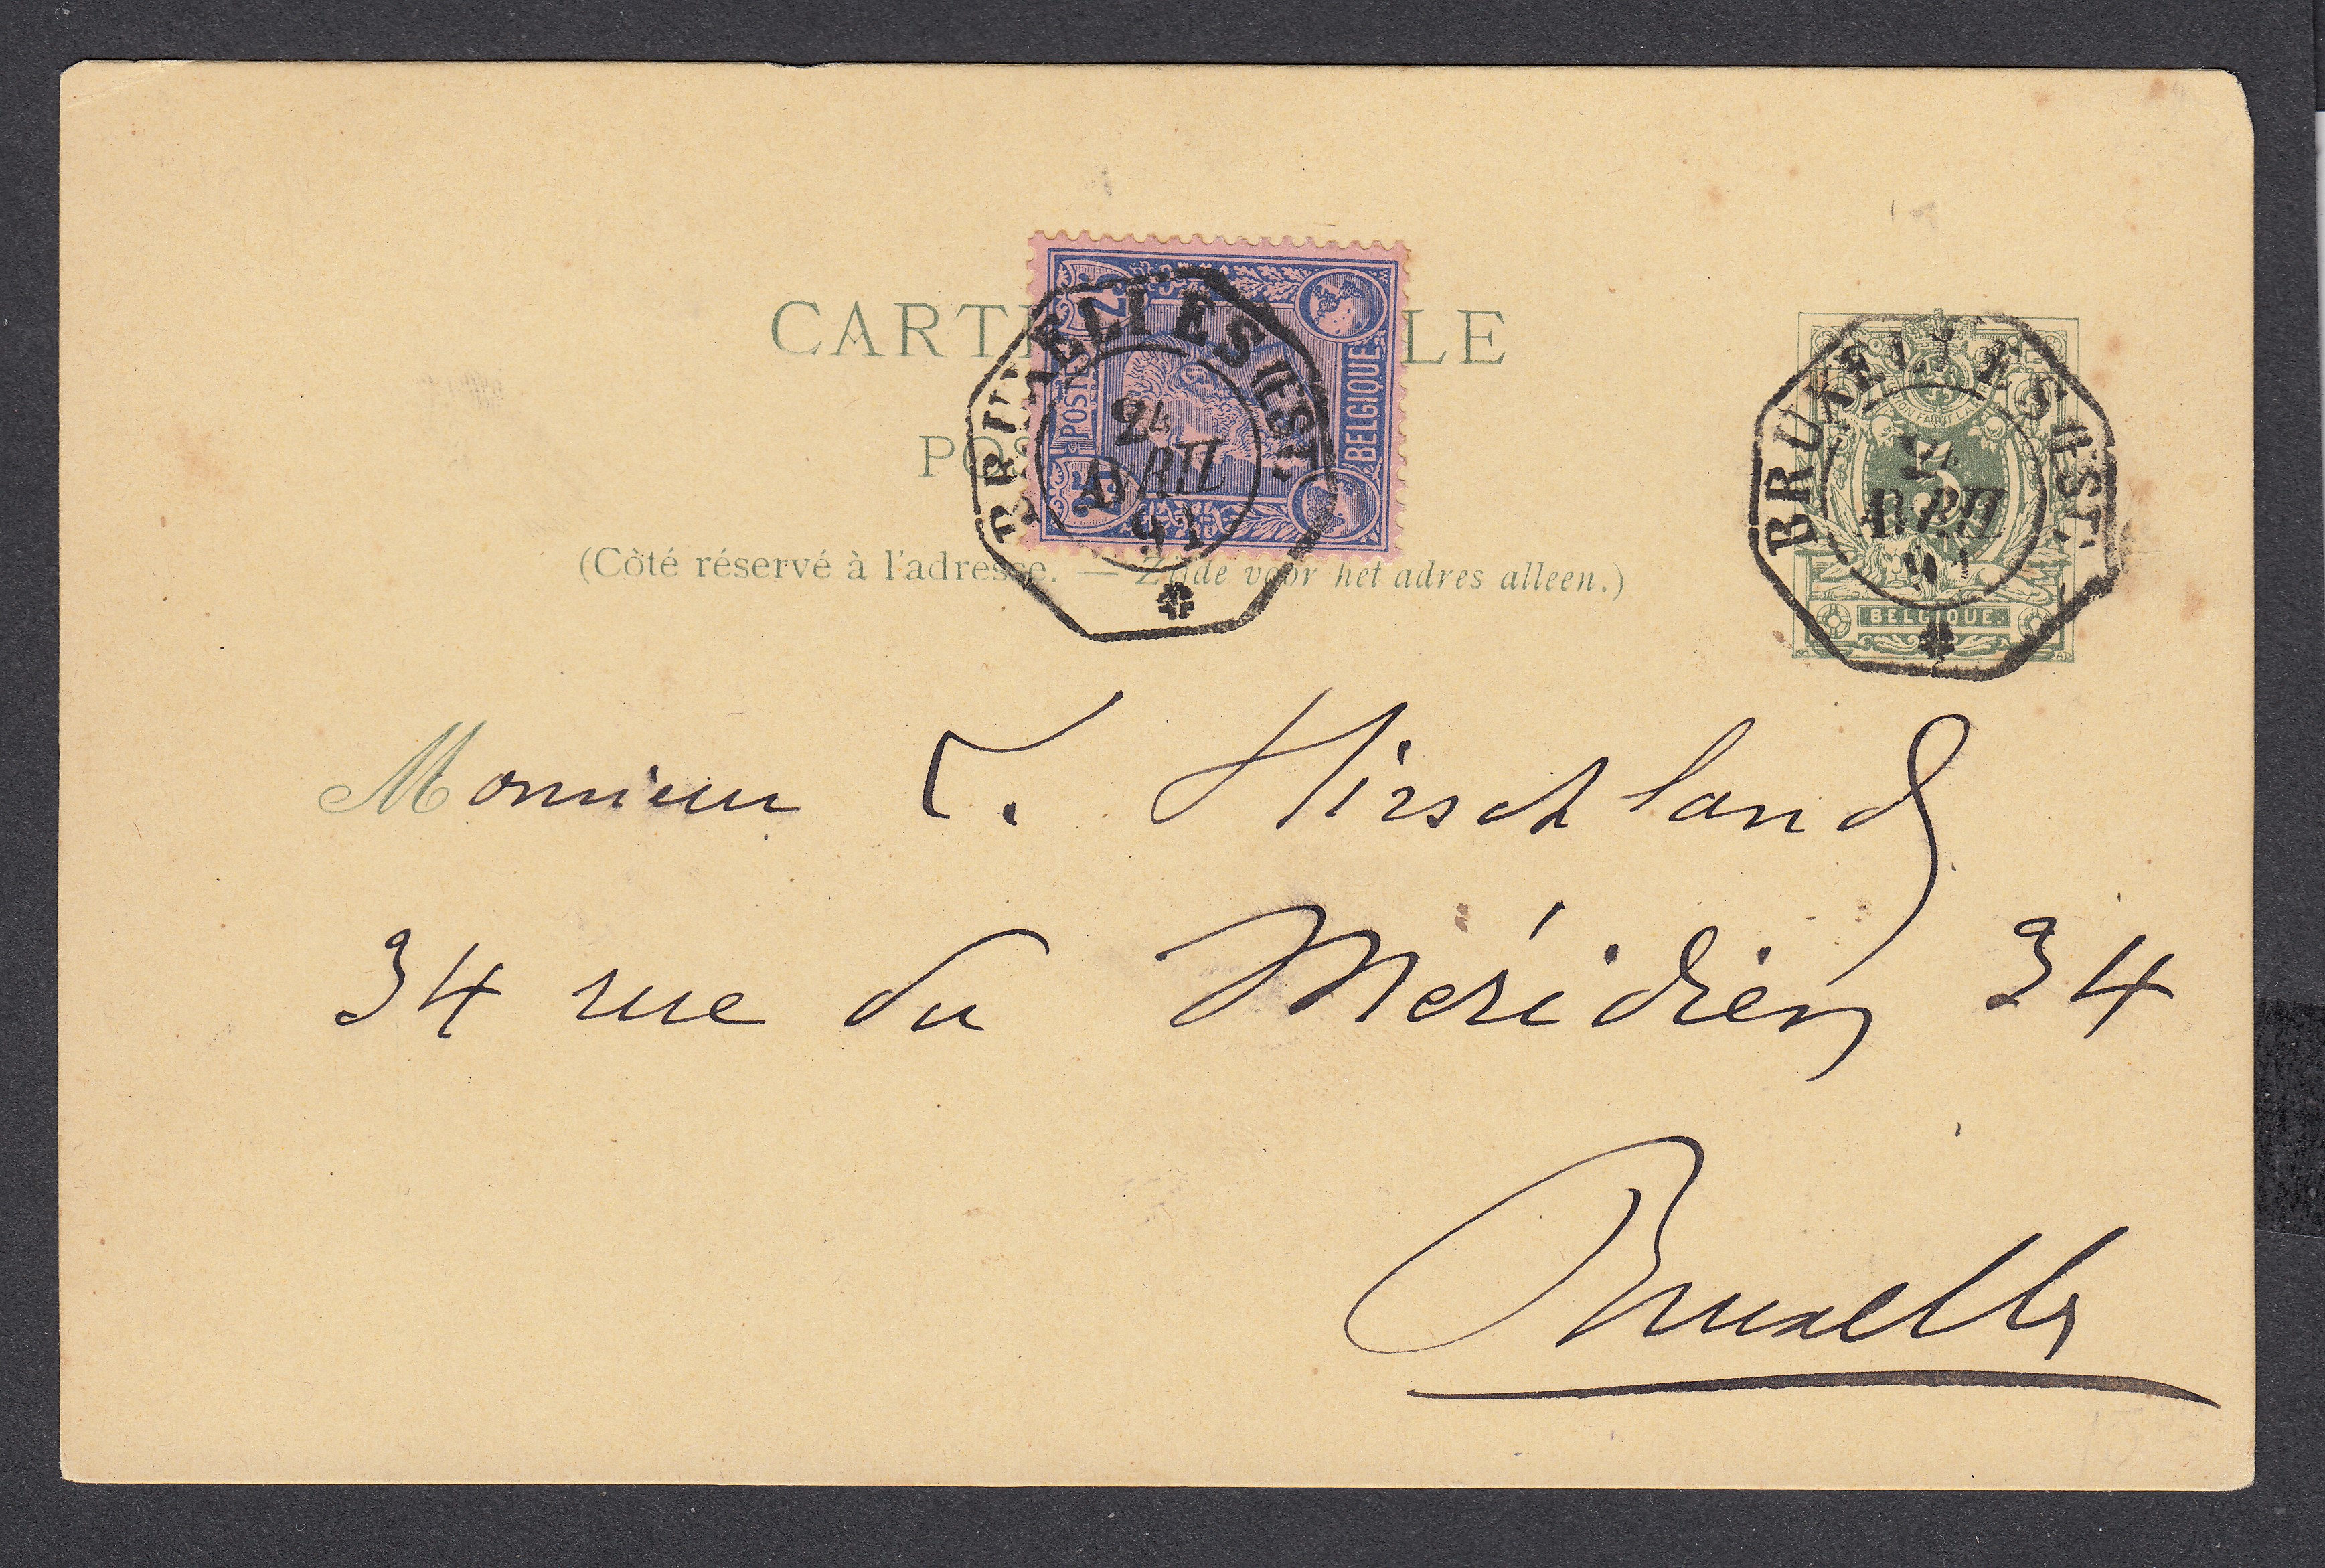 CARTE POSTALE
BELGIQUE
POSTES
BRUXELLES (EST)
24
AVRIL
91
BRUXELLES (EST)
24
AVRIL
91
5
BELGIQUE
(Côté réservé à l'adresse. — Zijde voor het adres alleen.)
Monsieur L. Hirschland
34 rue du Méridien 34
Bruxelles